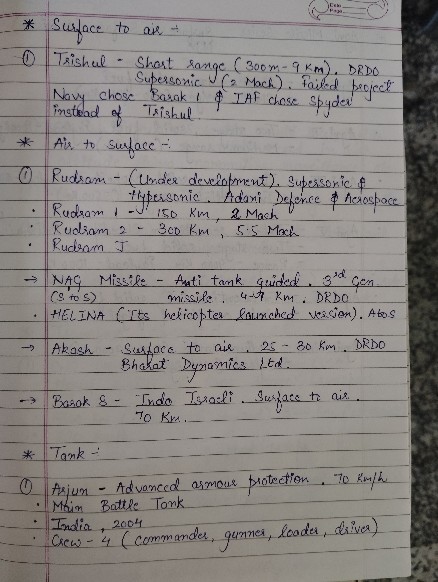 Date
Page
* Surface to air -:
① Trishul - Short range (300m - 9 Km). DRDO
Supersonic (2 Mach). Failed project
Navy chose Barak 1 & IAF chose Spyder
instead of Trishul.
* Air to surface -:
① Rudram - (Under development). Supersonic &
Hypersonic. Adani Defence & Aerospace
• Rudram 1 - 150 Km, 2 Mach
• Rudram 2 - 300 Km, 5.5 Mach
• Rudram
→ NAG Missile - Anti tank guided. 3rd Gen
(S to S) missile. Km. DRDO
• HELINA (Its helicopter launched version). AtoS
→ Akash - Surface to air. 25 - 30 Km. DRDO
Bharat Dynamics Ltd.
→ Barak 8 - Indo Israeli. Surface to air.
70 Km.
* Tank -:
① Arjun - Advanced armour protection. 70 Km/h
• Main Battle Tank
• India, 2004
• Crew - 4 (commander, gunner, loader, driver)